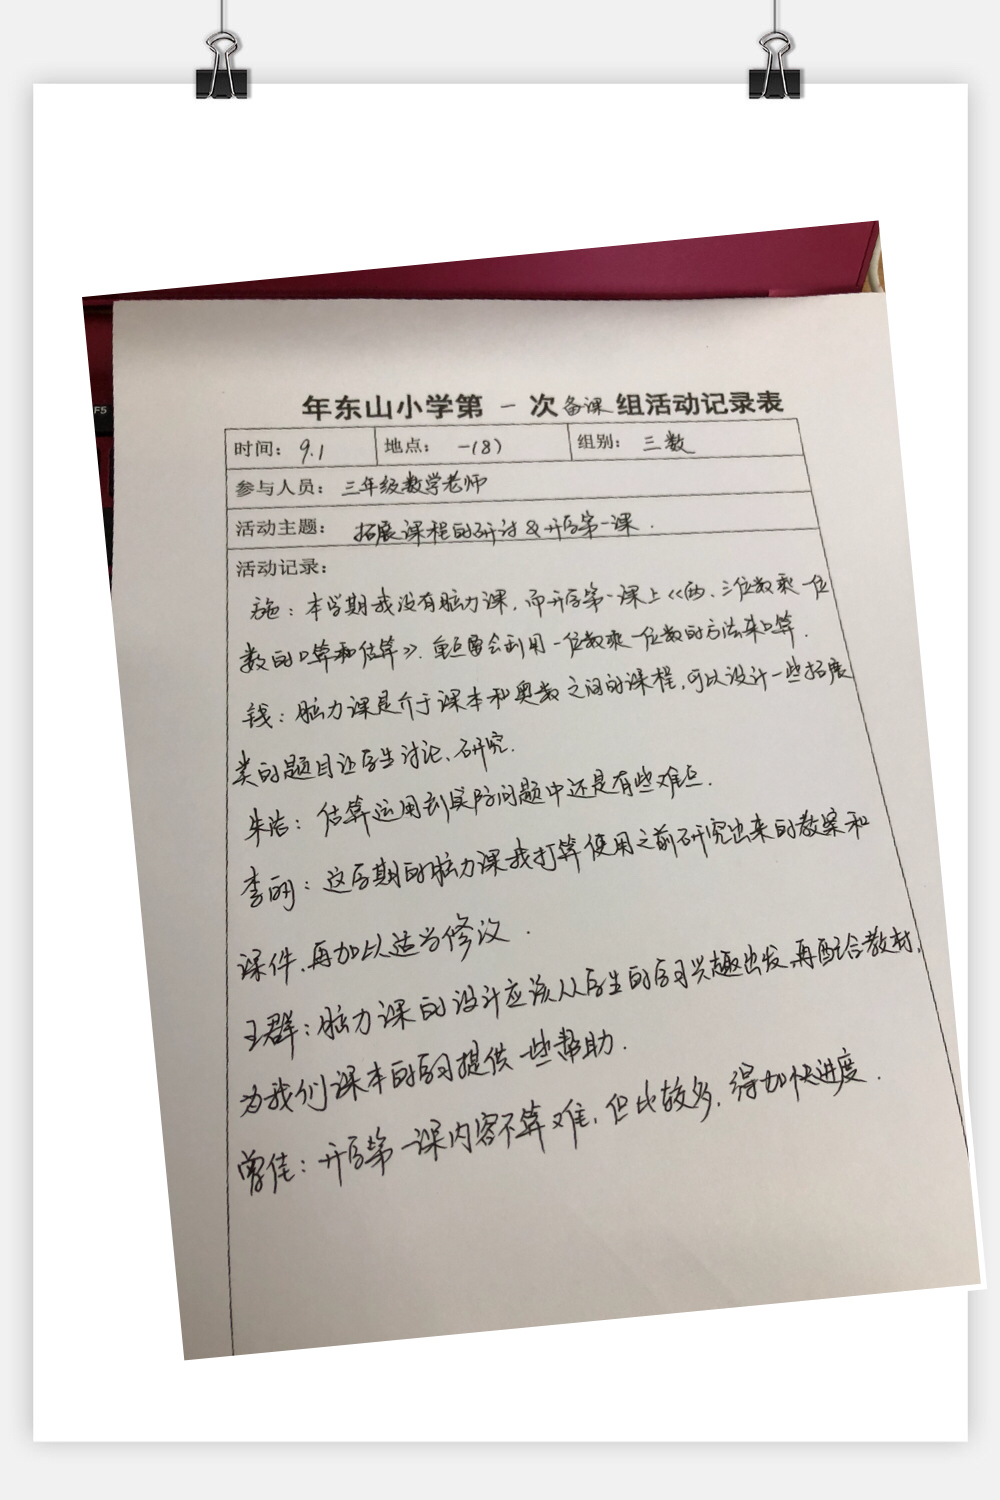 F5
年东山小学第 一 次 备课 组活动记录表
时间: 9.1 地点: 一(8) 组别: 三数
参与人员: 三年级数学老师
活动主题: 拓展课程的研讨&开学第一课.
活动记录:
施: 本学期我没有脑力课, 而开学第一课上《两、三位数乘一位
数的口算和估算》. 重点要会利用一位数乘一位数的方法来口算.
钱: 脑力课是介于课本和奥数之间的课程, 可以设计一些拓展
类的题目让学生讨论、研究.
朱洁: 估算运用到实际问题中还是有些难点.
李明: 这学期的脑力课我打算使用之前研究出来的教案和
课件, 再加以适当修改.
王群: 脑力课的设计应该从学生的学习兴趣出发, 再配合教材,
为我们课本的学习提供一些帮助.
曾佳: 开学第一课内容不算难, 但比较多, 得加快进度.